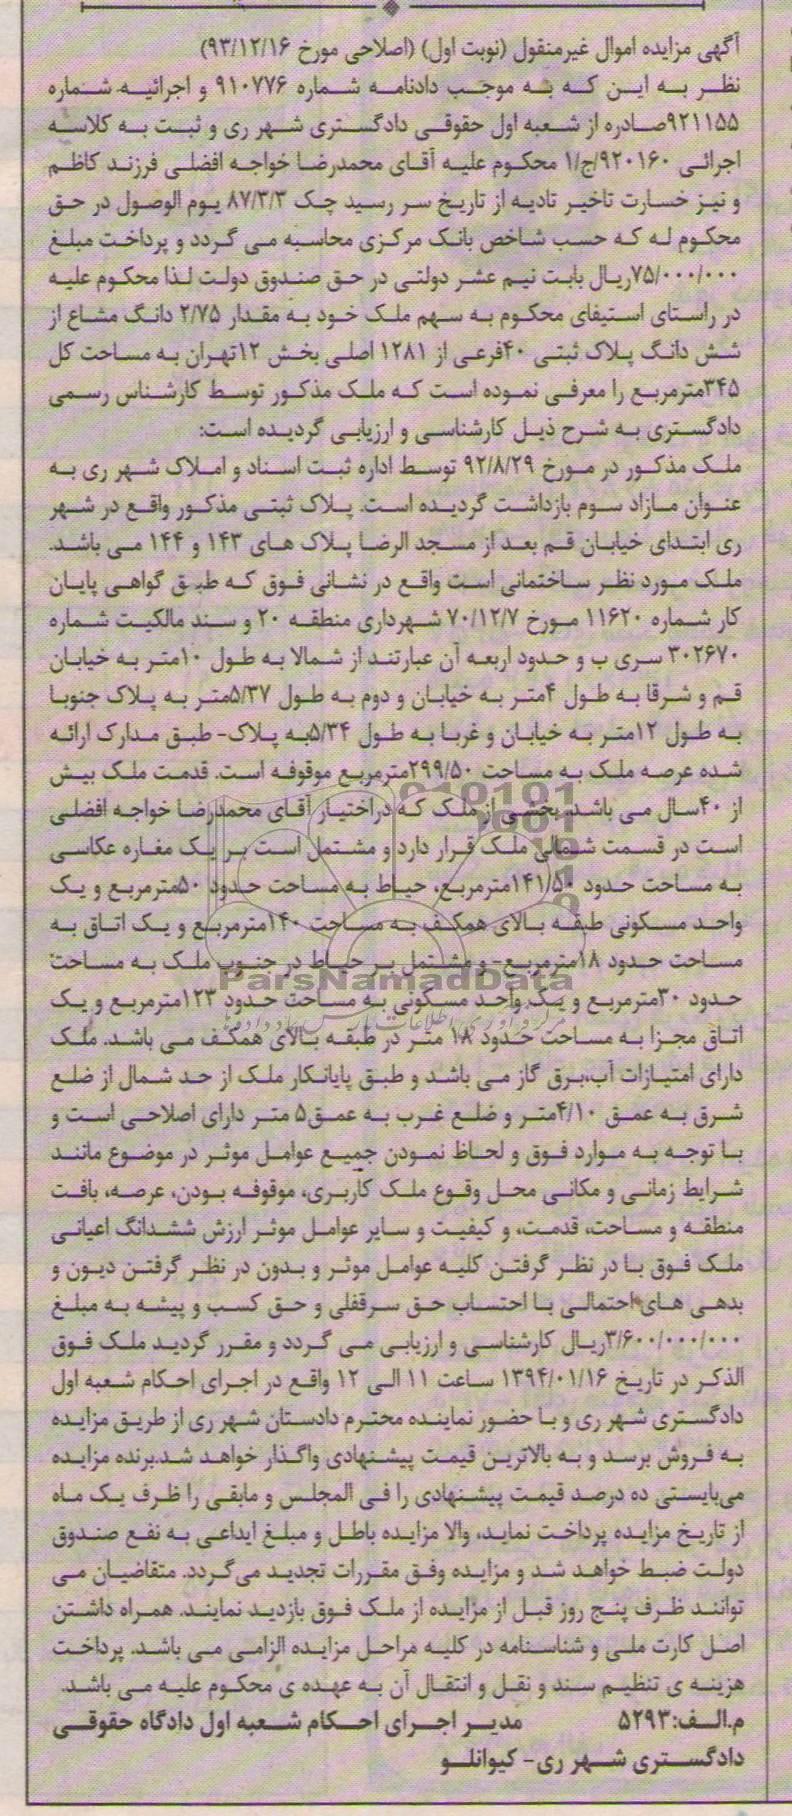 آگهی مزایده اموال غیرمنقول (نوبت اول) (اصلاحی مورخ ۹۳/۱۲/۱۶)
نظر به این که به موجب دادنامه شماره ۹۱۰۷۷۶ و اجرائیه شماره
۹۲۱۱۵۵صادره از شعبه اول حقوقی دادگستری شهر ری و ثبت به کلاسه
اجرائی ۹۲۰۱۶۰/ج/۱ محکوم علیه آقای محمدرضا خواجه افضلی فرزند کاظم
و نیز خسارت تاخیر تادیه از تاریخ سر رسید چک ۸۷/۳/۳ یوم الوصول در حق
محکوم له که حسب شاخص بانک مرکزی محاسبه می گردد و پرداخت مبلغ
۷۵/۰۰۰/۰۰۰ریال بابت نیم عشر دولتی در حق صندوق دولت لذا محکوم علیه
در راستای استیفای محکوم به سهم ملک خود به مقدار ۲/۷۵ دانگ مشاع از
شش دانگ پلاک ثبتی ۴۰فرعی از ۱۲۸۱ اصلی بخش ۱۲تهران به مساحت کل
۳۴۵مترمربع را معرفی نموده است که ملک مذکور توسط کارشناس رسمی
دادگستری به شرح ذیل کارشناسی و ارزیابی گردیده است:
ملک مذکور در مورخ ۹۲/۸/۲۹ توسط اداره ثبت اسناد و املاک شهر ری به
عنوان مازاد سوم بازداشت گردیده است. پلاک ثبتی مذکور واقع در شهر
ری ابتدای خیابان قم بعد از مسجد الرضا پلاک های ۱۴۳ و ۱۴۴ می باشد.
ملک مورد نظر ساختمانی است واقع در نشانی فوق که طبق گواهی پایان
کار شماره ۱۱۶۲۰ مورخ ۷۰/۱۲/۷ شهرداری منطقه ۲۰ و سند مالکیت شماره
۳۰۲۶۷۰ سری ب و حدود اربعه آن عبارتند از شمالا به طول ۱۰متر به خیابان
قم و شرقا به طول ۴متر به خیابان و دوم به طول ۵/۳۷متر به پلاک جنوبا
به طول ۱۲متر به خیابان و غربا به طول ۵/۳۴به پلاک- طبق مدارک ارائه
شده عرصه ملک به مساحت ۲۹۹/۵۰مترمربع موقوفه است. قدمت ملک بیش
از ۴۰سال می باشد. بخشی از ملک که دراختیار آقای محمدرضا خواجه افضلی
است در قسمت شمالی ملک قرار دارد و مشتمل است بر یک مغازه عکاسی
به مساحت حدود ۱۴۱/۵۰مترمربع، حیاط به مساحت حدود ۵۰مترمربع و یک
واحد مسکونی طبقه بالای همکف به مساحت ۱۴۰مترمربع و یک اتاق به
مساحت حدود ۱۸مترمربع- و مشتمل بر حیاط در جنوب ملک به مساحت
حدود ۳۰مترمربع و یک واحد مسکونی به مساحت حدود ۱۲۳مترمربع و یک
اتاق مجزا به مساحت حدود ۱۸ متر در طبقه بالای همکف می باشد. ملک
دارای امتیازات آب،برق گاز می باشد و طبق پایانکار ملک از حد شمال از ضلع
شرق به عمق ۴/۱۰متر و ضلع غرب به عمق۵ متر دارای اصلاحی است و
با توجه به موارد فوق و لحاظ نمودن جمیع عوامل موثر در موضوع مانند
شرایط زمانی و مکانی محل وقوع ملک کاربری، موقوفه بودن، عرصه، بافت
منطقه و مساحت، قدمت، و کیفیت و سایر عوامل موثر ارزش ششدانگ اعیانی
ملک فوق با در نظر گرفتن کلیه عوامل موثر و بدون در نظر گرفتن دیون و
بدهی های احتمالی با احتساب حق سرقفلی و حق کسب و پیشه به مبلغ
۳/۶۰۰/۰۰۰/۰۰۰ریال کارشناسی و ارزیابی می گردد و مقرر گردید ملک فوق
الذکر در تاریخ ۱۳۹۴/۰۱/۱۶ ساعت ۱۱ الی ۱۲ واقع در اجرای احکام شعبه اول
دادگستری شهر ری و با حضور نماینده محترم دادستان شهر ری از طریق مزایده
به فروش برسد و به بالاترین قیمت پیشنهادی واگذار خواهد شد.برنده مزایده
می‌بایستی ده درصد قیمت پیشنهادی را فی المجلس و مابقی را ظرف یک ماه
از تاریخ مزایده پرداخت نماید، والا مزایده باطل و مبلغ ایداعی به نفع صندوق
دولت ضبط خواهد شد و مزایده وفق مقررات تجدید می‌گردد. متقاضیان می
توانند ظرف پنج روز قبل از مزایده از ملک فوق بازدید نمایند. همراه داشتن
اصل کارت ملی و شناسنامه در کلیه مراحل مزایده الزامی می باشد. پرداخت
هزینه ی تنظیم سند و نقل و انتقال آن به عهده ی محکوم علیه می باشد.
م.الف:۵۲۹۳ مدیر اجرای احکام شعبه اول دادگاه حقوقی
دادگستری شهر ری- کیوانلو
ParsNamadData